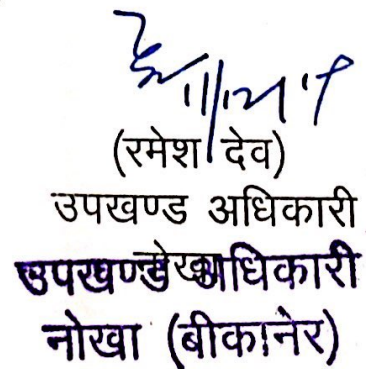 (रमेश देव)
उपखण्ड अधिकारी
नोखा
उपखण्ड अधिकारी
नोखा (बीकानेर)